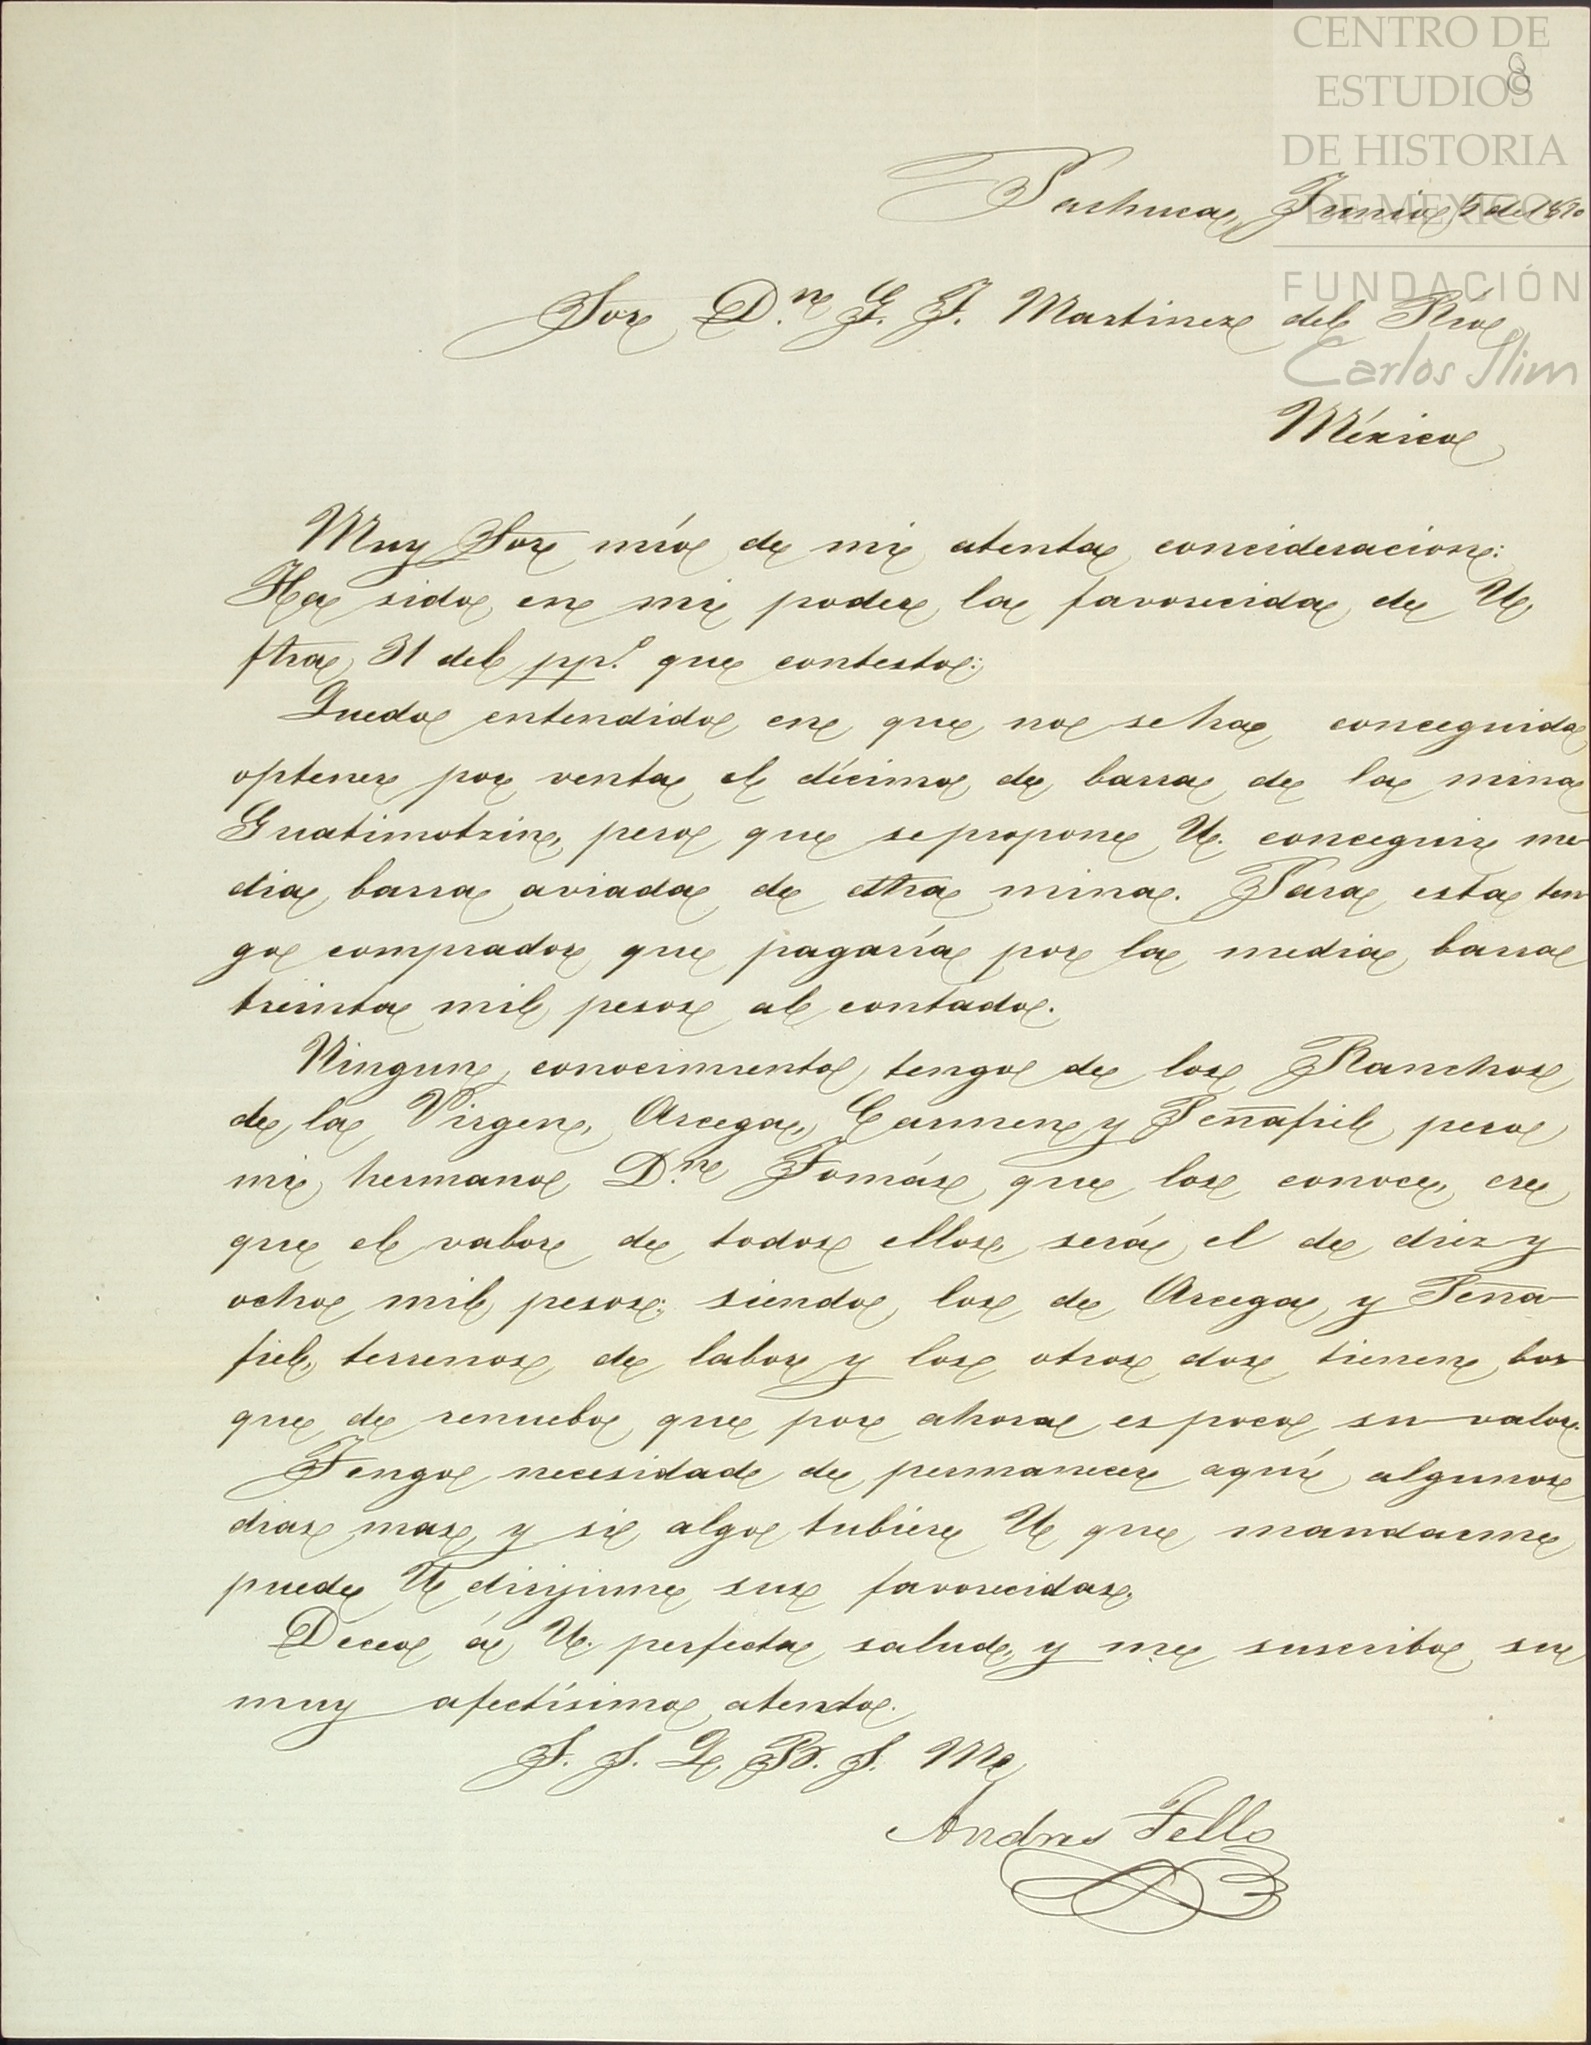 CENTRO DE
ESTUDIOS
DE HISTORIA
DE MEXICO
FUNDACIÓN
Carlos Slim
8
Pachuca, Junio 5 de 1890
Sor D.n G. J. Martinez del Rio
México
Muy Sor mío de mi atenta concideracion:
Ha sido en mi poder la favorecida de U
fha 31 del pp.o que contesto:
Quedo entendido en que no se ha conceguido
optener por venta el décimo de barra de la mina
Guatimotzin, pero que se propone U. conceguir me
dia barra aviada de dha mina. Para esta ten
go comprador que pagaría por la media barra
treinta mil pesos al contado.
Ningun conocimiento tengo de los Ranchos
de la Virgen, Arcega, Carmen y Peñafiel, pero
mi hermano D.n Tomás que los conoce, cre
que el valor de todos ellos será el de diez y
ocho mil pesos; siendo los de Arcega y Peña
fiel, terrenos de labor y los otros dos tienen bos
que de renuebo que por ahora es poco su valor.
Tengo necesidad de permanecer aquí algunos
dias mas y si algo tubiere U que mandarme
puede U dirijirme sus favorecidas.
Deceo á U. perfecta salud, y me suscribo su
muy afectísimo atento.
S. S. Q. B. S. M
Andres Tello